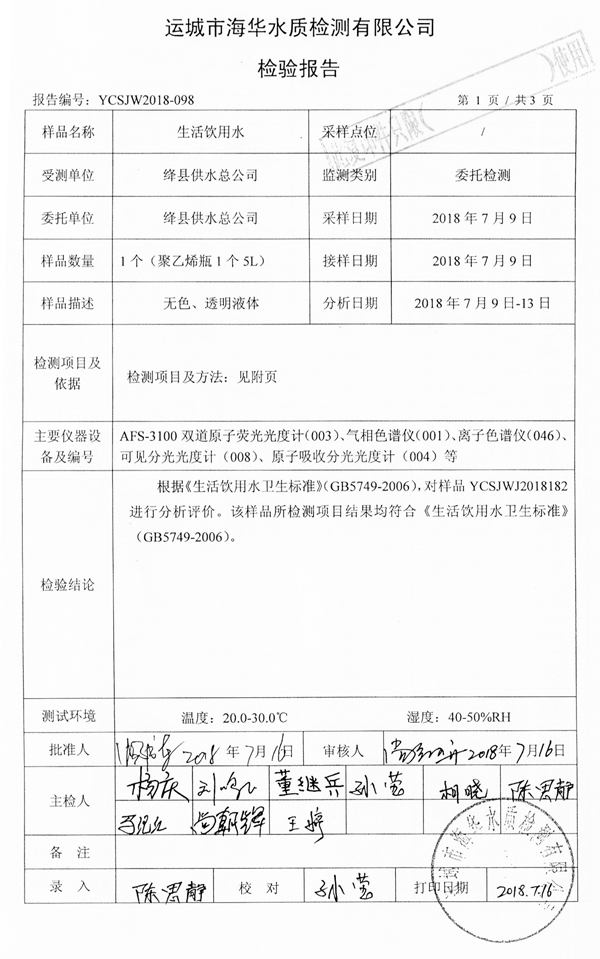 运城市海华水质检测有限公司
检验报告
此复印件只限( )使用
报告编号：YCSJW2018-098 第 1 页 / 共 3 页
样品名称 生活饮用水 采样点位 /
受测单位 绛县供水总公司 监测类别 委托检测
委托单位 绛县供水总公司 采样日期 2018 年 7 月 9 日
样品数量 1 个（聚乙烯瓶 1 个 5L） 接样日期 2018 年 7 月 9 日
样品描述 无色、透明液体 分析日期 2018 年 7 月 9 日-13 日
检测项目及
依据
检测项目及方法：见附页
主要仪器设
备及编号
AFS-3100 双道原子荧光光度计（003）、气相色谱仪（001）、离子色谱仪（046）、
可见分光光度计（008）、原子吸收分光光度计（004）等
检验结论
根据《生活饮用水卫生标准》（GB5749-2006），对样品 YCSJWJ2018182
进行分析评价。该样品所检测项目结果均符合《生活饮用水卫生标准》
（GB5749-2006）。
测试环境 温度：20.0-30.0℃ 湿度：40-50%RH
批准人 2018 年 7 月 16 日 审核人 2018 年 7 月 16 日
主检人 杨庆 董继兵 孙莹 相晓 陈思静
尚朝辉 王婷
备 注
录 入 陈思静 校 对 孙莹 打印日期 2018.7.16
运城市海华水质检测有限公司